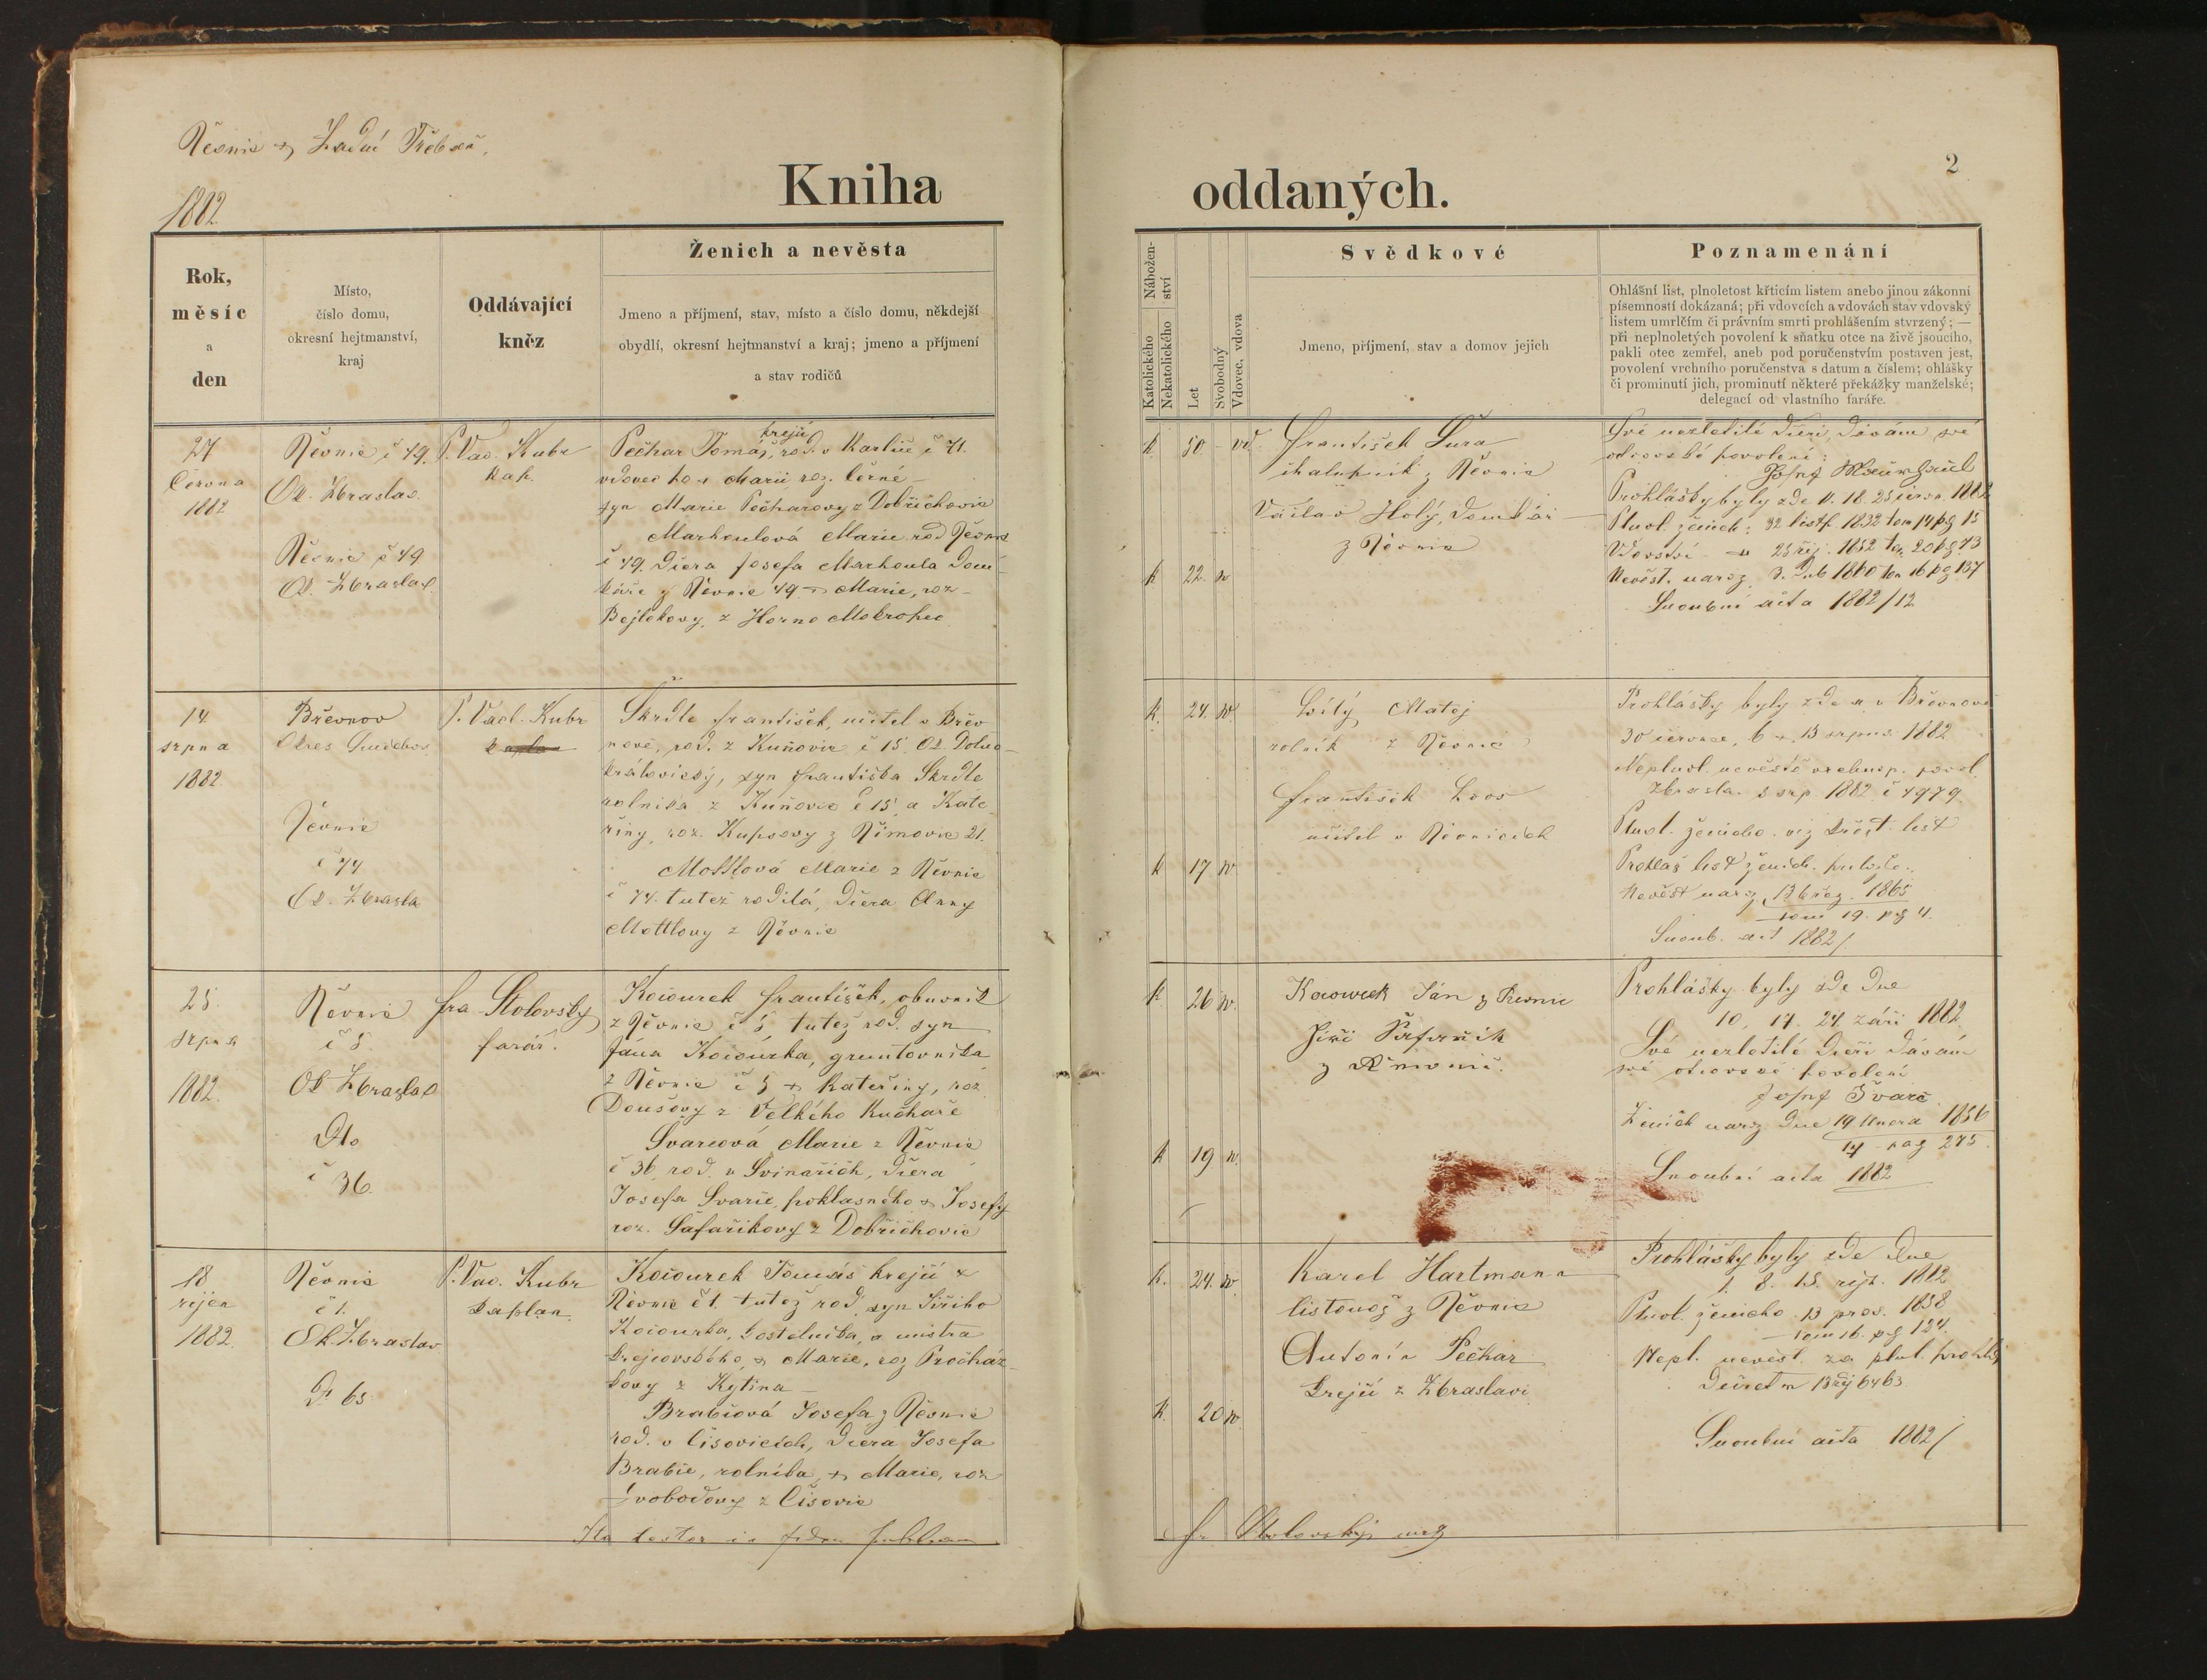 Řevnic & Zadní Třeban.
1882
Kniha
Rok,
měsíc
a
den
Místo,
číslo domu,
okresní hejtmanství,
kraj
Oddávající
kněz
Ženich a nevěsta
Jmeno a příjmení, stav, místo a číslo domu, někdejší
obydlí, okresní hejtmanství a kraj; jmeno a příjmení
a stav rodičů
27
Června
1882
Řevnic č 49.
Ok. Zbraslav.
Řevnic č 49
O. Zbraslav
P. Vac. Kubr
kap.
krejčí
Pečhar Tomáš, rod. v Karlíce č 41.
vdovec po Marii roz. Černé
syn Marie Pečharovy z Dobřichovic
Markoulová Marie rod Řevnic
č 49. Dcera Josefa Markoula Dom-
káře z Řevnic 49 Marie, roz
Bejlokovy z Horno Mokropec
14.
srpna
1882.
Břevnov
Okres
Řevnic
č 74
Ok. Zbrasla
P. Vacl. Kubr
kaplan
Škrdle František, učitel v Břev
nově, rod. z Kuňovic č 15 Ok. Dolno-
královický, syn Františka Škrdle
rolníka z Kuňovic č 15 a Kate
řiny, roz. Kupsovy z Římovic 21.
Mottlová Marie z Řevnic
č 74. tutéž rodilá, Dcera Anny
Mottlovy z Řevnic
25.
srpna
1882.
Řevnic
č 5
Ok Zbraslav
Dto
č 36.
Fra Stolovský
farář.
Kocourek František, obuvník
z Řevnic č 5, tutéž rod. syn
Jána Kocourka, gruntovníka
z Řevnic č 5 & Kateřiny, roz
Doušovy z Velkého Kuchaře
Svarcová Marie z Řevnic
č 36, rod. v Svinařích, Dcera
Josefa Svarce, poklasného & Josefy
roz. Šafaříkovy z Dobřichovic
18
říjen
1882.
Řevnic
č 1.
Ok. Zbraslav
Dt 65
P. Vac. Kubr
kaplan.
Kocourek Tomáš krejčí z
Řevnic č 1. tutéž rod. syn Jiřího
Kocourka, kostelníka, a mistra
krejčovského, & Marie, roz Procház-
kovy z Kytína
Brabcová Josefa z Řevnic
rod. v Čisovicích, Dcera Josefa
Brabce, rolníka, & Marie, roz
Svobodovy z Čisovic
Ita testor in fidem publicam
oddaných.
2
Nábožen-
ství
Katolického
Nekatolického
Let
Svobodný
Vdovec, vdova
Svědkové
Jmeno, příjmení, stav a domov jejich
Poznamenání
Ohlášní list, plnoletost křticím listem anebo jinou zákonní
písemností dokázaná; při vdovcích a vdovách stav vdovský
listem umrlčím či právním smrti prohlášením stvrzený; —
při neplnoletých povolení k sňatku otce na živě jsoucího,
pakli otec zemřel, aneb pod poručenstvím postaven jest,
povolení vrchního poručenstva s datum a číslem; ohlášky
či prominutí jich, prominutí některé překážky manželské;
delegací od vlastního faráře.
k 50 - vd.
František Šura
chalupník z Řevnic
Václav Holý, domkář
z Řevnic
k 22. sv
Své nezletilé dceři, dávám své
otcovské povolení:
Josef
Prohlášky byly zde 11. 18. 25 červn. 1882
Plnol. ženich: 32 listp. 1832 tom 14 pg 15
Vdovství 25 říj. 1852 tom. 20 pg 73
Nevěst. naroz. 3. Dub 1860 tom 16 pg 137
Snoubní acta 1882/12
k. 24. sv.
Litý Matěj
rolník z Řevnic
František Loos
učitel v Řevnicích
k 17 sv.
Prohlášky byly zde a v Břevnově
30 července, 6 & 13 srpna 1882
Neplnol. nevěstě vrchnop. povol.
Zbrasla. 8 srp. 1882 č 4979.
Plnol. ženicha viz křest. list
Prohláš list ženich. přilož.
Nevěst naroz. 13 břez. 1865
tom 19. pg 4.
Snoub. act 1882/
k 26 sv.
Kocourek Ján z Řevnic
Jiří Šafařík
z Řevnic.
k 19 sv.
Prohlášky byly zde dne
10, 17. 24 září 1882
Své nezletilé dceři dávám
své otcovské povolení
Josef Švarc
Ženich naroz dne 19 února 1856
14 pag 275
Snoubní acta 1882
k. 24. sv
Karel Hartmann
listonoš z Řevnic
Antonín Pečhar
krejčí z Zbraslavi
k. 20 sv
Prohlášky byly zde dne
1. 8. 15. říj. 1882
Plnol. ženicho. 13 pros. 1858
tom 16. pg 124.
Nepl. nevěst. za plnl. prohláš
decretem 13 říj 6463
Snoubní acta 1882/
Fr Stolovský mp